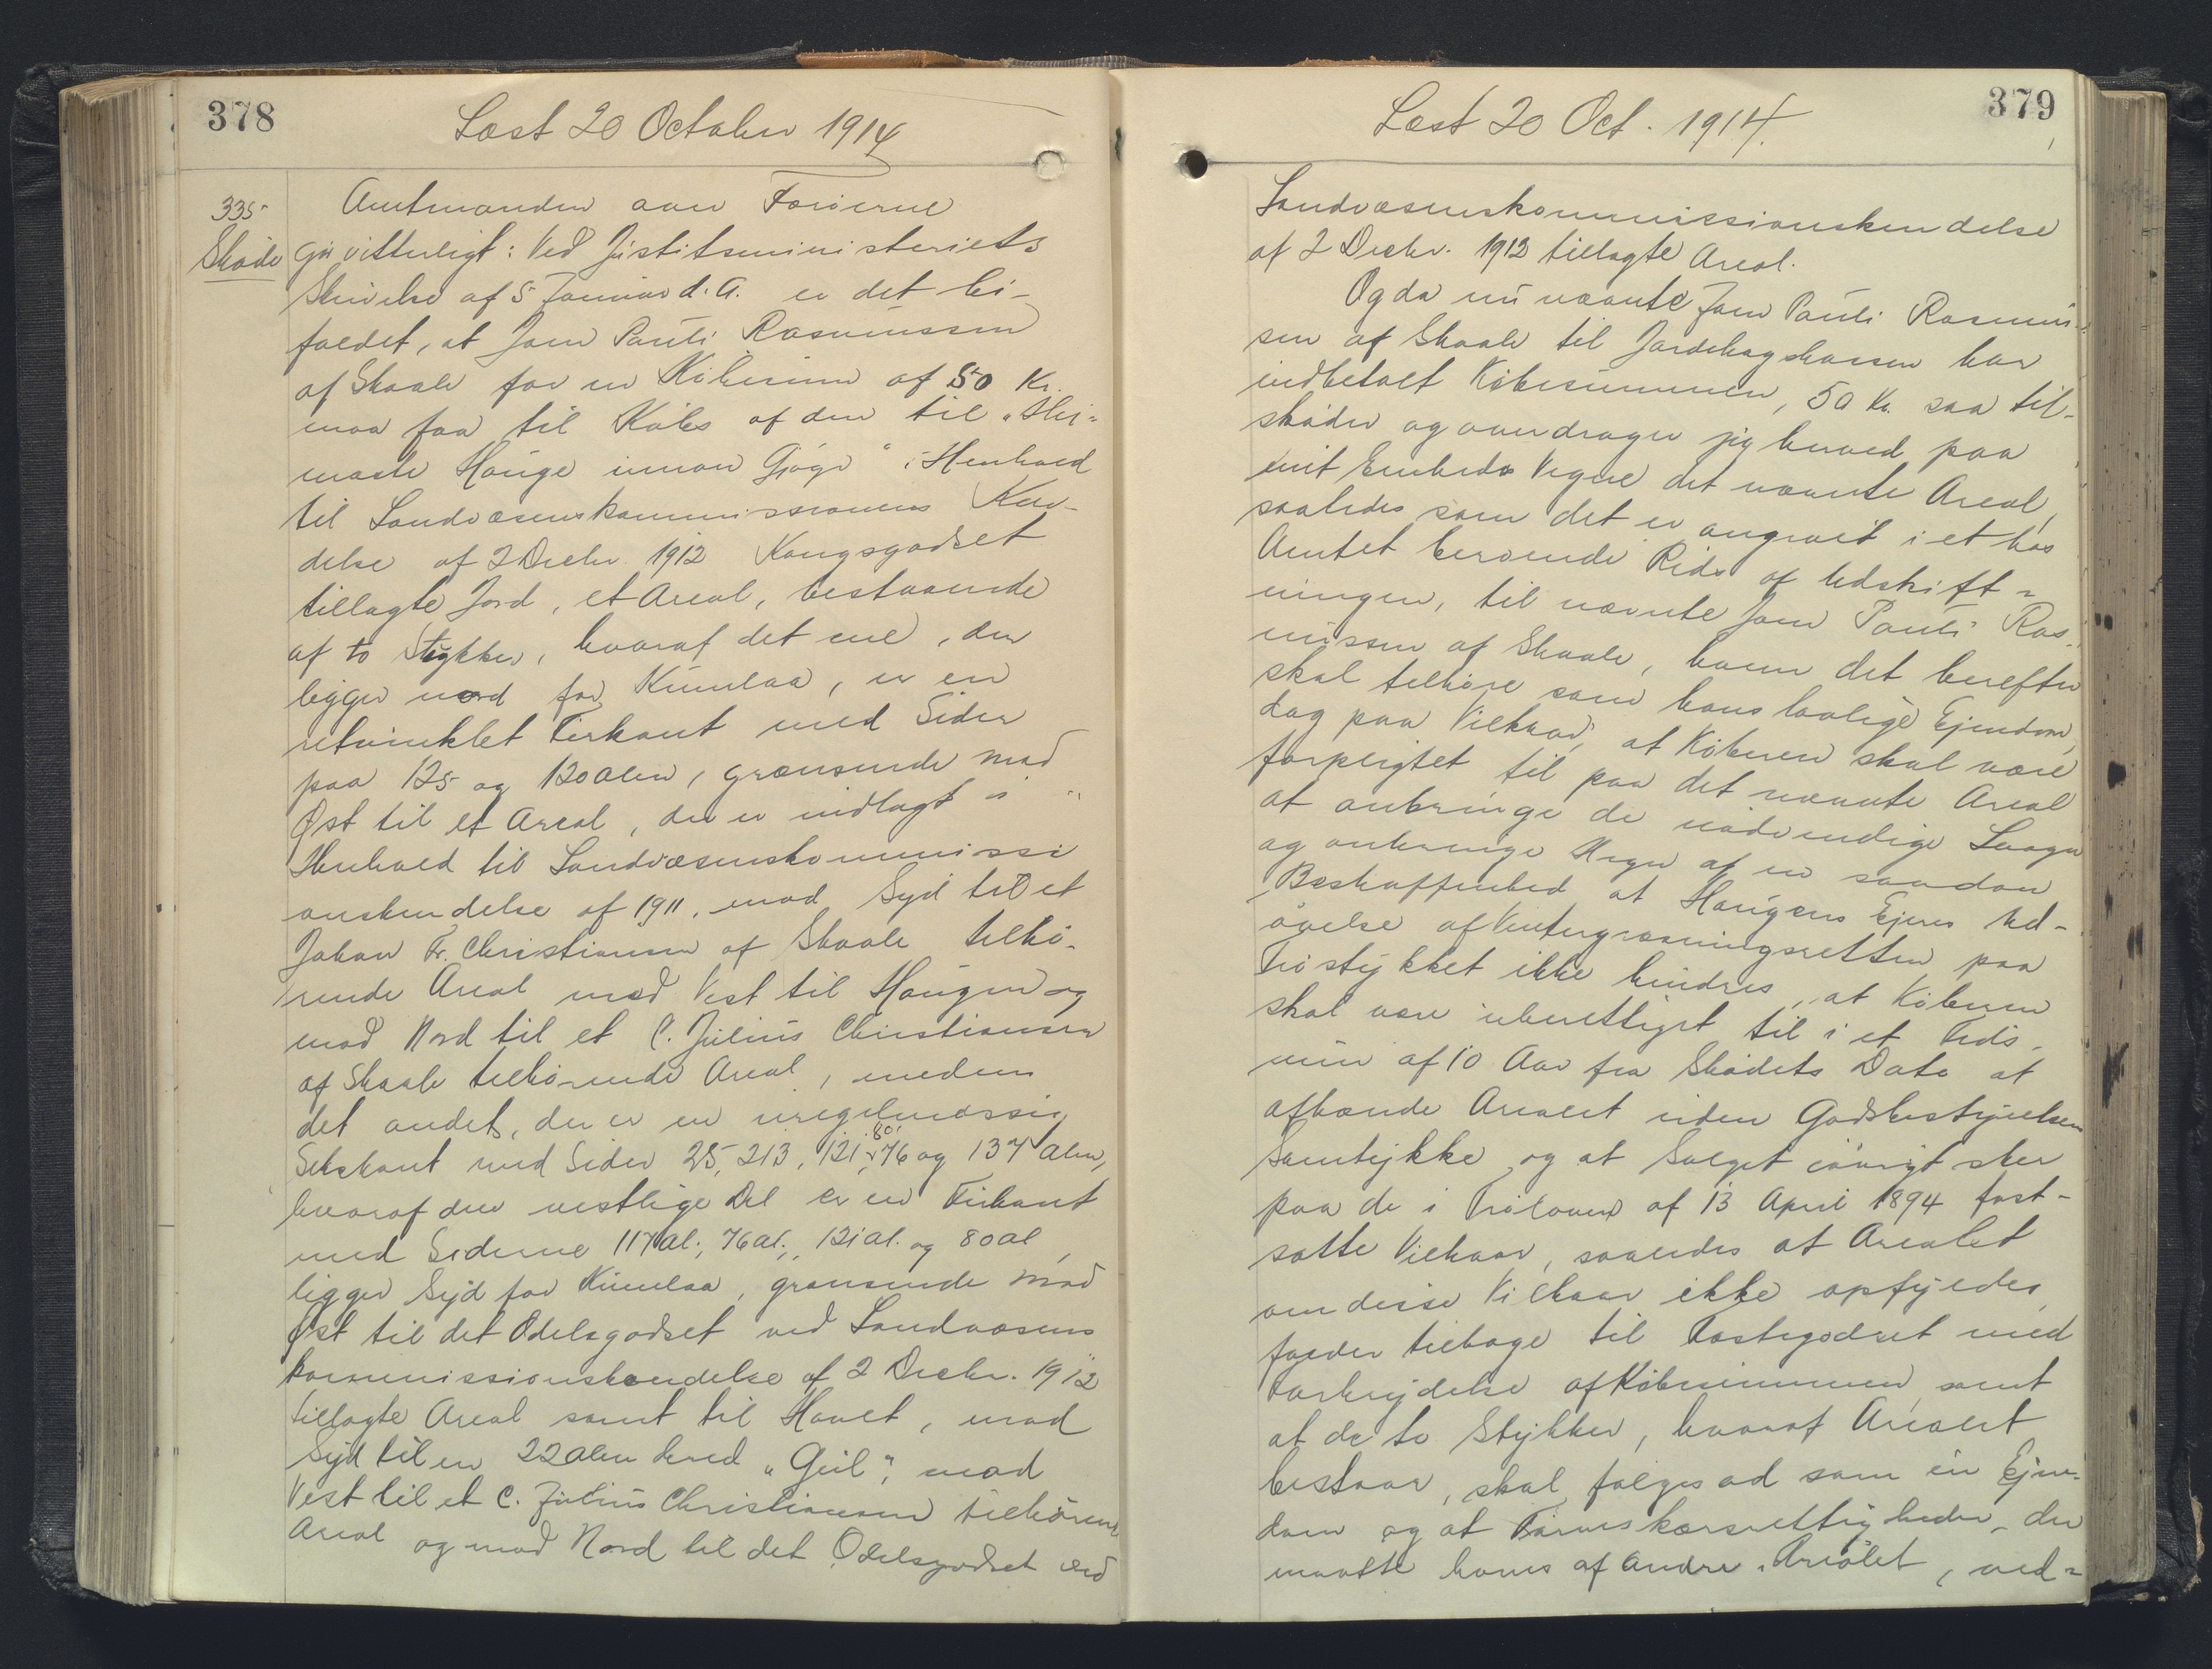 378
Læst 20 October 1914
335
Skøde
Amtmanden over Færøerne
gør vitterligt: Ved Justitsministeriets
Skrivelse af 5 Januar d. A. er det bi-
faldet, at Joen Pauli Rasmussen
af Skaale for en Købesum af 50 Kr.
maa faa til Købs af den til "Hei-
maste Hauge innan Gjógv" i Henhold
til Landvæsenskommissionens Ken-
delse af 2 Decbr. 1912 Kongsgodset
tillagte Jord, et Areal, bestaaende
af to Stykker, hvoraf det ene, der
ligger nord for Kumlaa, er en
retvinklet Firkant med Sider
paa 125 og 120 Alen, grænsende mod
Øst til et Areal, der er indlagt i
Henhold til Landvæsenskommissi
onskendelse af 1911, mod Syd til et
Johan Fr. Christiansen af Skaale tilhø-
rende Areal mod Vest til Haugen og
mod Nord til et C. Julius Christiansen
af Skaale tilhørende Areal, medens
det andet, der er en uregelmæssig
Sekskant med Sider 25, 213, 121, 80, 76 og 137 Alen,
hvoraf den vestlige Del er en Firkant
med Siderne 117 Al., 76 Al., 121 Al. og 80 Al,
ligger Syd for Kumlaa, grænsende mod
Øst til det Odelsgodset ved Landvæsens
kommissionskendelse af 2 Decbr. 1912
tillagte Areal samt til Havet, mod
Syd til en 22 Alen bred "Geil", mod
Vest til et C. Julius Christiansen tilhørende
Areal og mod Nord til det Odelsgodset ved
379
Læst 20 Oct. 1914.
Landvæsenskommissionskendelse
af 2 Decbr. 1912 tillagte Areal.
Og da nu nævnte Joen Pauli Rasmus-
sen af Skaale til Jordebogskassen har
indbetalt Købesummen, 50 Kr. saa til-
skøder og overdrager jeg herved paa
mit Embeds Vegne det nævnte Areal,
saaledes som det er angivet i et hos
Amtet beroende Rids af Udskift-
ningen, til nævnte Joen Pauli Ras-
mussen af Skaale, hvem det herefter
skal tilhøre som hans lovlige Ejendom,
dog paa Vilkaar, at Køberen skal være
forpligtet til paa det nævnte Areal
at anbringe de nødvendige Laager
og anbringe Hegn af en saadan
Beskaffenhed at Haugens Ejeres Ud-
øvelse af Vintergræsningsretten paa
Trøstykket ikke hindres, at Køberen
skal være uberettiget til i et Tids-
rum af 10 Aar fra Skødets Dato at
afhænde Arealet uden Godsbestyrelsens
Samtykke og at Salget iøvrigt sker
paa de i Trøloven af 13 April 1894 fast-
satte Vilkaar, saaledes at Arealet
om disse Vilkaar ikke opfyldes,
falder tilbage til Fæstegodset med
Fortrydelse af Købesummen samt
at de to Stykker, hvoraf Arealet
bestaar, skal følges ad som én Ejen-
dom og at Tørveskærsrettigheder, der
maatte haves af andre i Arealet, ved-